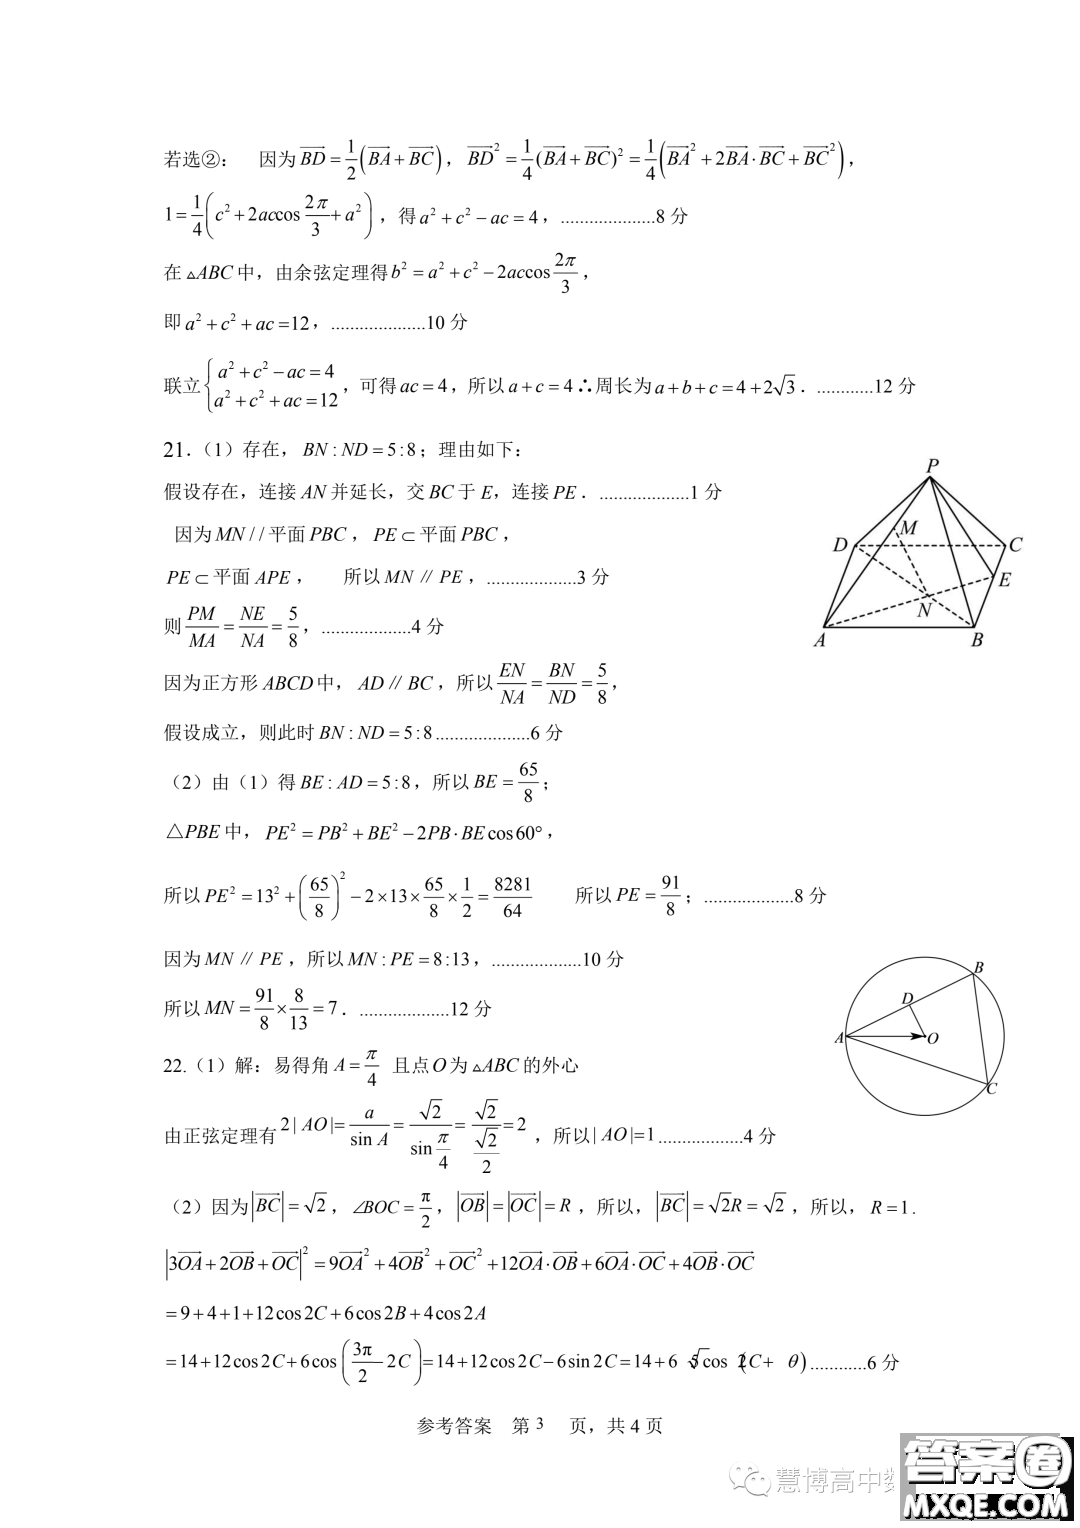 若选②： 因为 $\overrightarrow{BD}=\frac{1}{2}(\overrightarrow{BA}+\overrightarrow{BC})$，$\overrightarrow{BD}^2=\frac{1}{4}(\overrightarrow{BA}+\overrightarrow{BC})^2=\frac{1}{4}(\overrightarrow{BA}^2+2\overrightarrow{BA}\cdot\overrightarrow{BC}+\overrightarrow{BC}^2)$，
$1=\frac{1}{4}(c^2+2ac\cos\frac{2\pi}{3}+a^2)$，得 $a^2+c^2-ac=4$，....................8 分
在 △ABC 中，由余弦定理得 $b^2=a^2+c^2-2ac\cos\frac{2\pi}{3}$，
即 $a^2+c^2+ac=12$，....................10 分
联立 $\begin{cases}a^2+c^2-ac=4\\a^2+c^2+ac=12\end{cases}$，可得 $ac=4$，所以 $a+c=4$ ∴周长为 $a+b+c=4+2\sqrt{3}$．............12 分
21.（1）存在，BN : ND = 5 : 8；理由如下：
假设存在，连接 AN 并延长，交 BC 于 E，连接 PE．...................1 分
因为 MN // 平面 PBC，PE ⊂ 平面 PBC，
PE ⊂ 平面 APE， 所以 MN ∥ PE，...................3 分
则 $\frac{PM}{MA}=\frac{NE}{NA}=\frac{5}{8}$，...................4 分
因为正方形 ABCD 中，AD ∥ BC，所以 $\frac{EN}{NA}=\frac{BN}{ND}=\frac{5}{8}$，
假设成立，则此时 BN : ND = 5 : 8....................6 分
P
M
D
C
E
N
A
B
（2）由（1）得 BE : AD = 5 : 8，所以 $BE=\frac{65}{8}$；
△PBE 中，$PE^2=PB^2+BE^2-2PB\cdot BE\cos60°$，
所以 $PE^2=13^2+\left(\frac{65}{8}\right)^2-2\times13\times\frac{65}{8}\times\frac{1}{2}=\frac{8281}{64}$ 所以 $PE=\frac{91}{8}$；...................8 分
因为 MN ∥ PE，所以 MN : PE = 8 : 13，...................10 分
所以 $MN=\frac{91}{8}\times\frac{8}{13}=7$．...................12 分
B
D
A
O
C
22.（1）解：易得角 $A=\frac{\pi}{4}$ 且点 O 为 △ABC 的外心
由正弦定理有 $2|AO|=\frac{a}{\sin A}=\frac{\sqrt{2}}{\sin\frac{\pi}{4}}=\frac{\sqrt{2}}{\frac{\sqrt{2}}{2}}=2$，所以 $|AO|=1$..................4 分
（2）因为 $|\overrightarrow{BC}|=\sqrt{2}$，$\angle BOC=\frac{\pi}{2}$，$|\overrightarrow{OB}|=|\overrightarrow{OC}|=R$，所以，$|\overrightarrow{BC}|=\sqrt{2}R=\sqrt{2}$，所以，$R=1$．
$|3\overrightarrow{OA}+2\overrightarrow{OB}+\overrightarrow{OC}|^2=9\overrightarrow{OA}^2+4\overrightarrow{OB}^2+\overrightarrow{OC}^2+12\overrightarrow{OA}\cdot\overrightarrow{OB}+6\overrightarrow{OA}\cdot\overrightarrow{OC}+4\overrightarrow{OB}\cdot\overrightarrow{OC}$
$=9+4+1+12\cos2C+6\cos2B+4\cos2A$
$=14+12\cos2C+6\cos\left(\frac{3\pi}{2}-2C\right)=14+12\cos2C-6\sin2C=14+6\sqrt{5}\cos(2C+\theta)$............6 分
参考答案 第 3 页，共 4 页
慧博高中数
答案圈
MXQE.COM